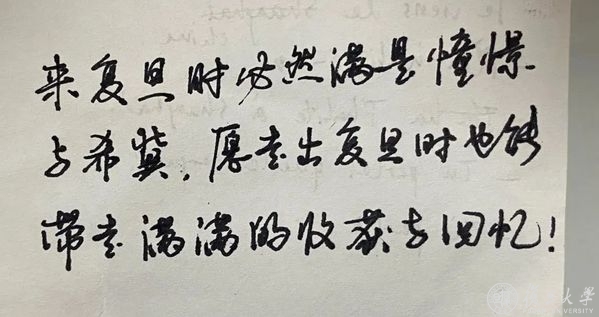 来复旦时必然满是憧憬
与希冀，愿走出复旦时也能
带走满满的收获与回忆！
大学